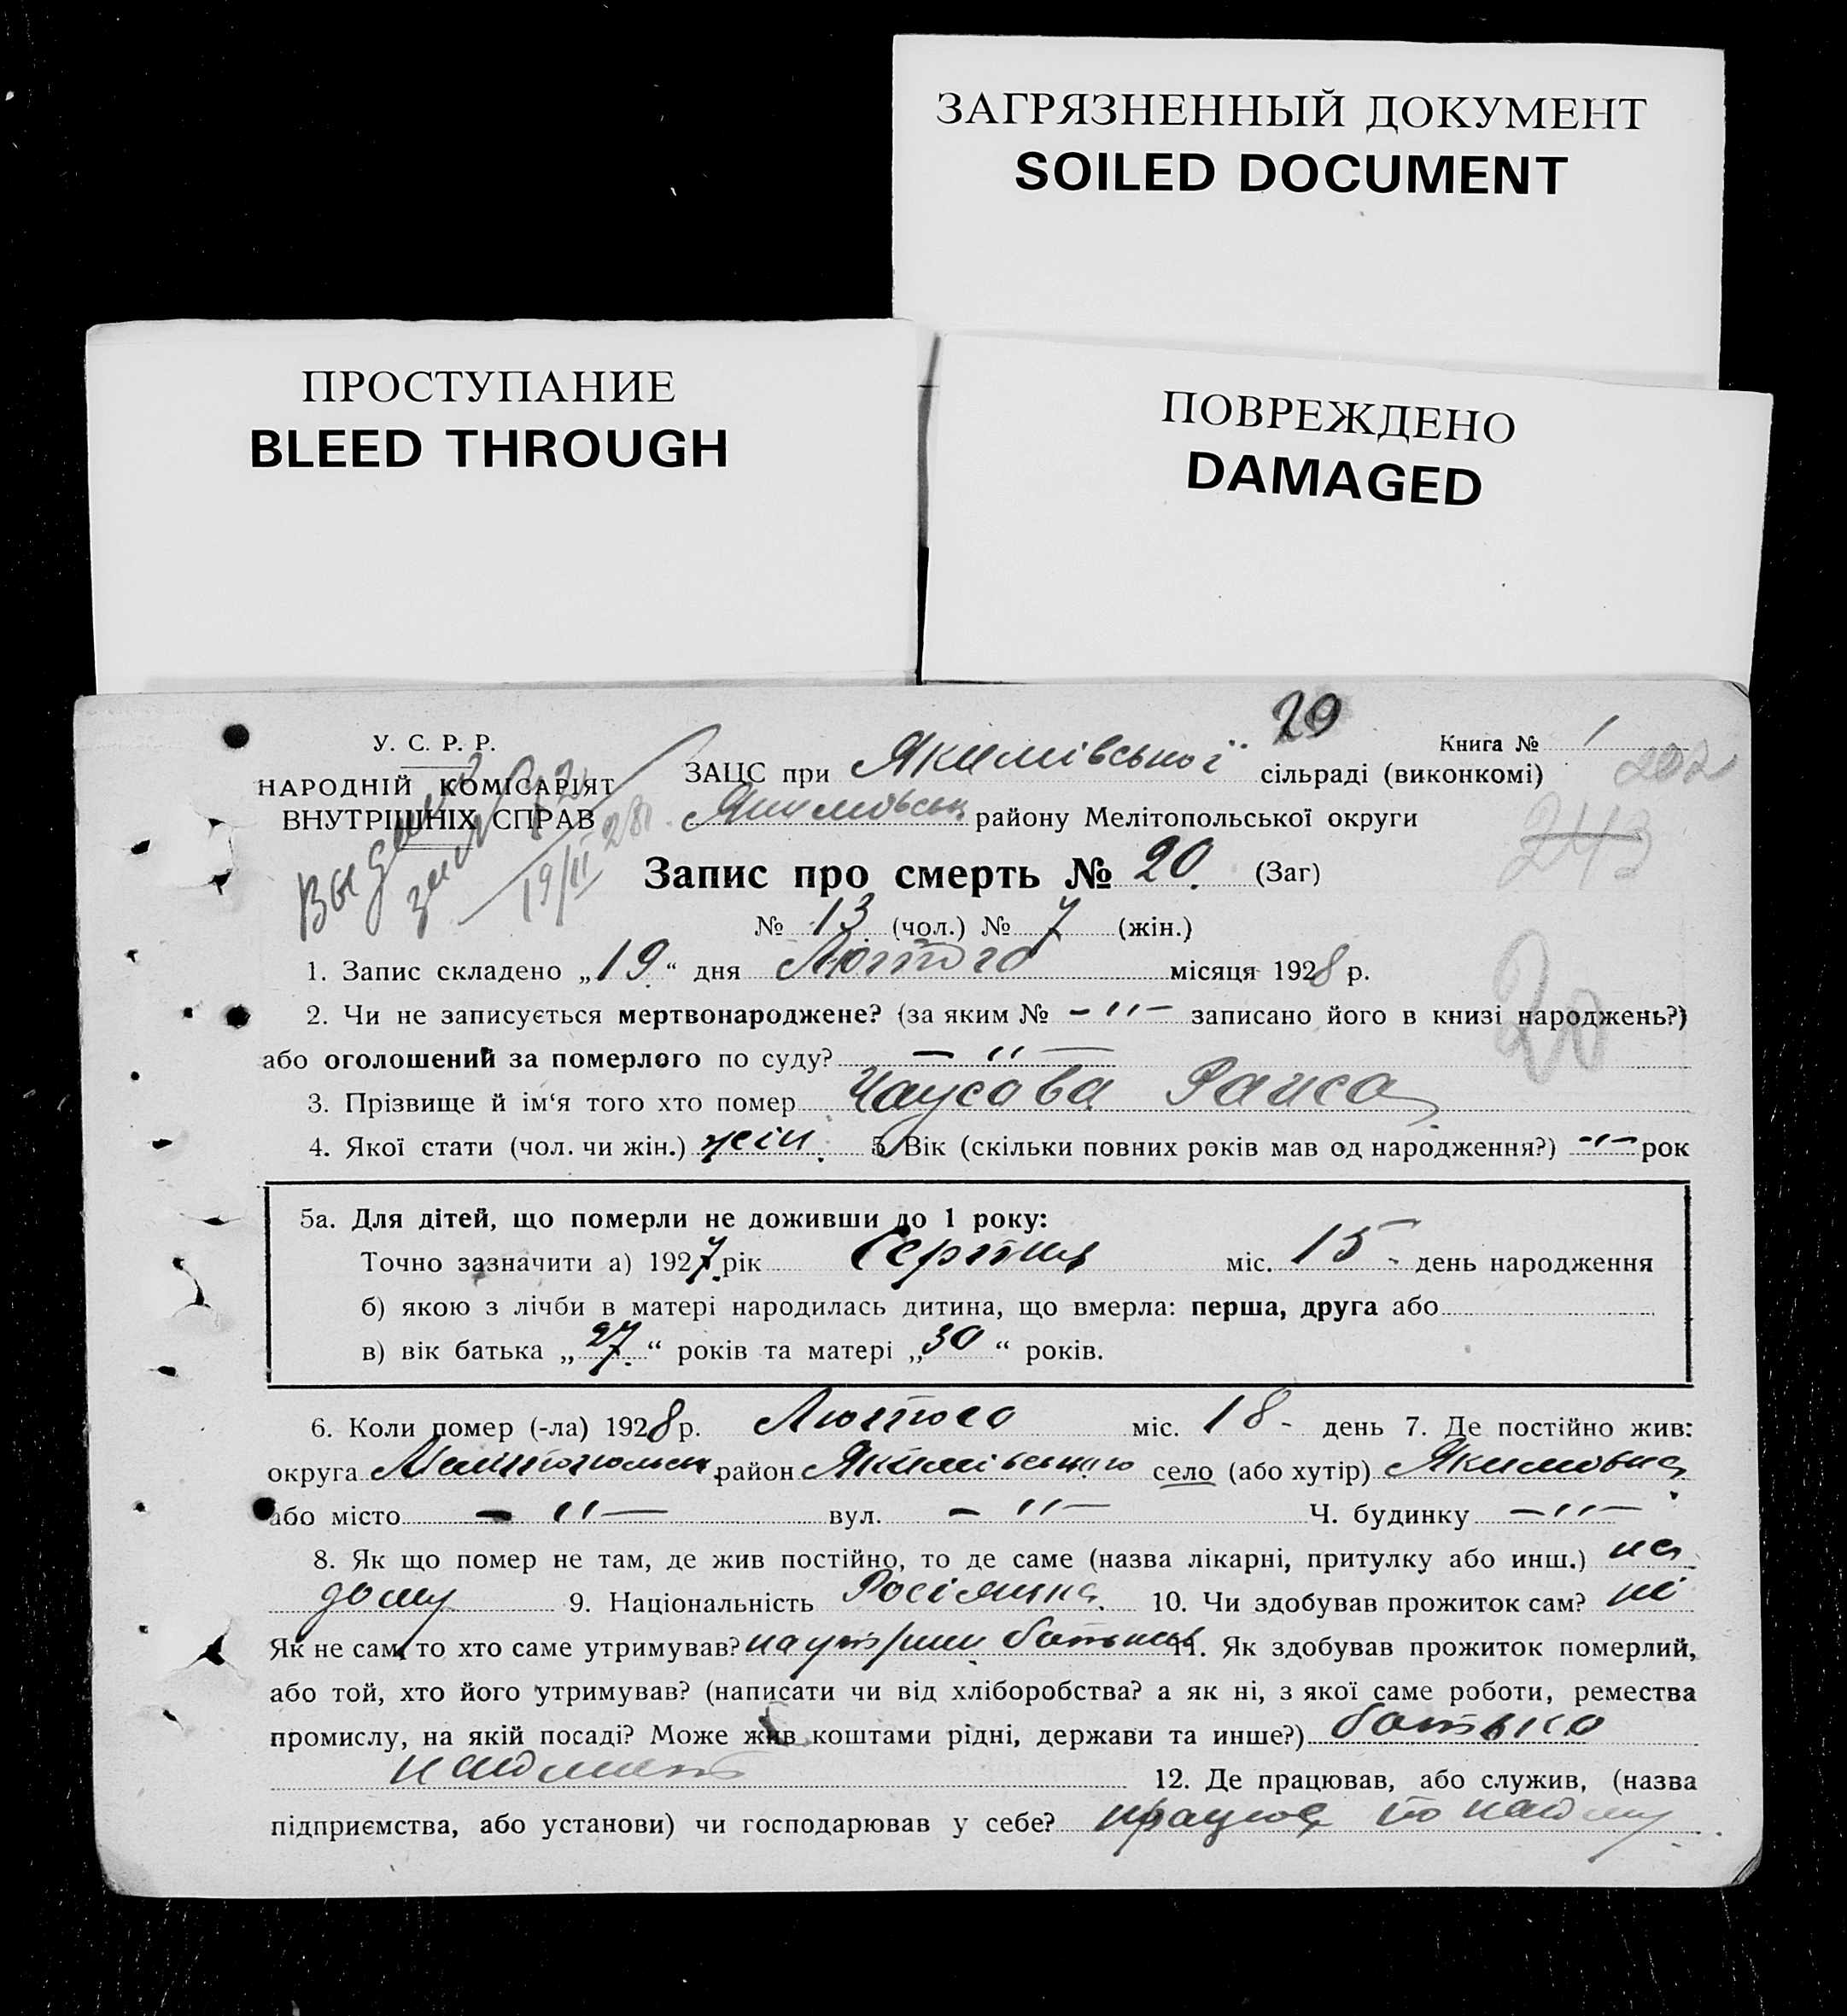 ЗАГРЯЗНЕННЫЙ ДОКУМЕНТ
SOILED DOCUMENT
ПРОСТУПАНИЕ
BLEED THROUGH
ПОВРЕЖДЕНО
DAMAGED
20
У. С. Р. Р.
НАРОДНІЙ КОМІСАРІЯТ
ВНУТРІШНІХ СПРАВ
19/II 28
Книга № 1
202
243
20
ЗАЦС при Якимівської сільраді (виконкомі)
району Мелітопольської округи
Запис про смерть № 20. (Заг)
№ 13 (чол.) № 7 (жін.)
1. Запис складено „19“ дня Лютого місяця 1928 р.
2. Чи не записується мертвонароджене? (за яким № -"- записано його в книзі народжень?)
або оголошений за померлого по суду? -"-
3. Прізвище й ім'я того хто помер Чаусова Раиса
4. Якої стати (чол. чи жін.) жін. 5. Вік (скільки повних років мав од народження?) -"- рок
5а. Для дітей, що померли не доживши до 1 року:
Точно зазначити а) 1927 рік Серпня міс. 15 - день народження
б) якою з лічби в матері народилась дитина, що вмерла: перша, друга або
в) вік батька „27“ років та матері „30“ років.
6. Коли помер (-ла) 1928 р. Лютого міс. 18 - день 7. Де постійно жив:
округа Мелітопольск. район Якимівського село (або хутір) Якимовка
або місто -"- вул. -"- Ч. будинку -"-
8. Як що помер не там, де жив постійно, то де саме (назва лікарні, притулку або инш.) на
дому 9. Національність Росіянка 10. Чи здобував прожиток сам? ні
Як не сам, то хто саме утримував? на утрим. батьків 11. Як здобував прожиток померлий,
або той, хто його утримував? (написати чи від хліборобства? а як ні, з якої саме роботи, ремества
промислу, на якій посаді? Може жив коштами рідні, держави та инше?) батько
наймит 12. Де працював, або служив, (назва
підприємства, або установи) чи господарював у себе? працює по найму